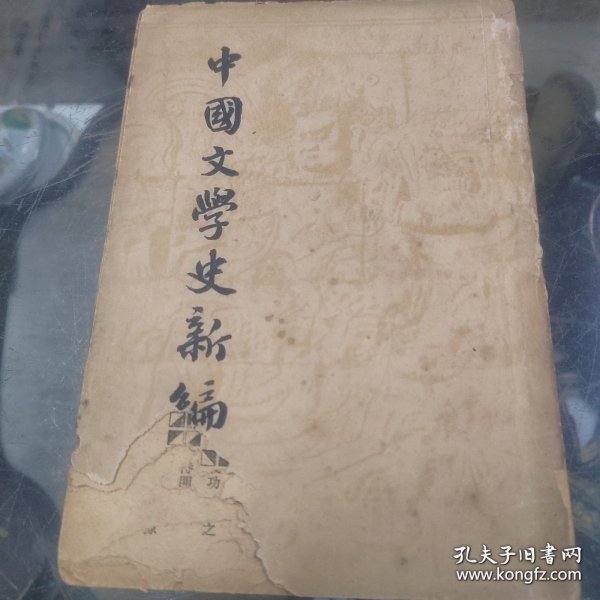 中國文學史新編
功
之
開
孔夫子旧書网
www.kongfz.com